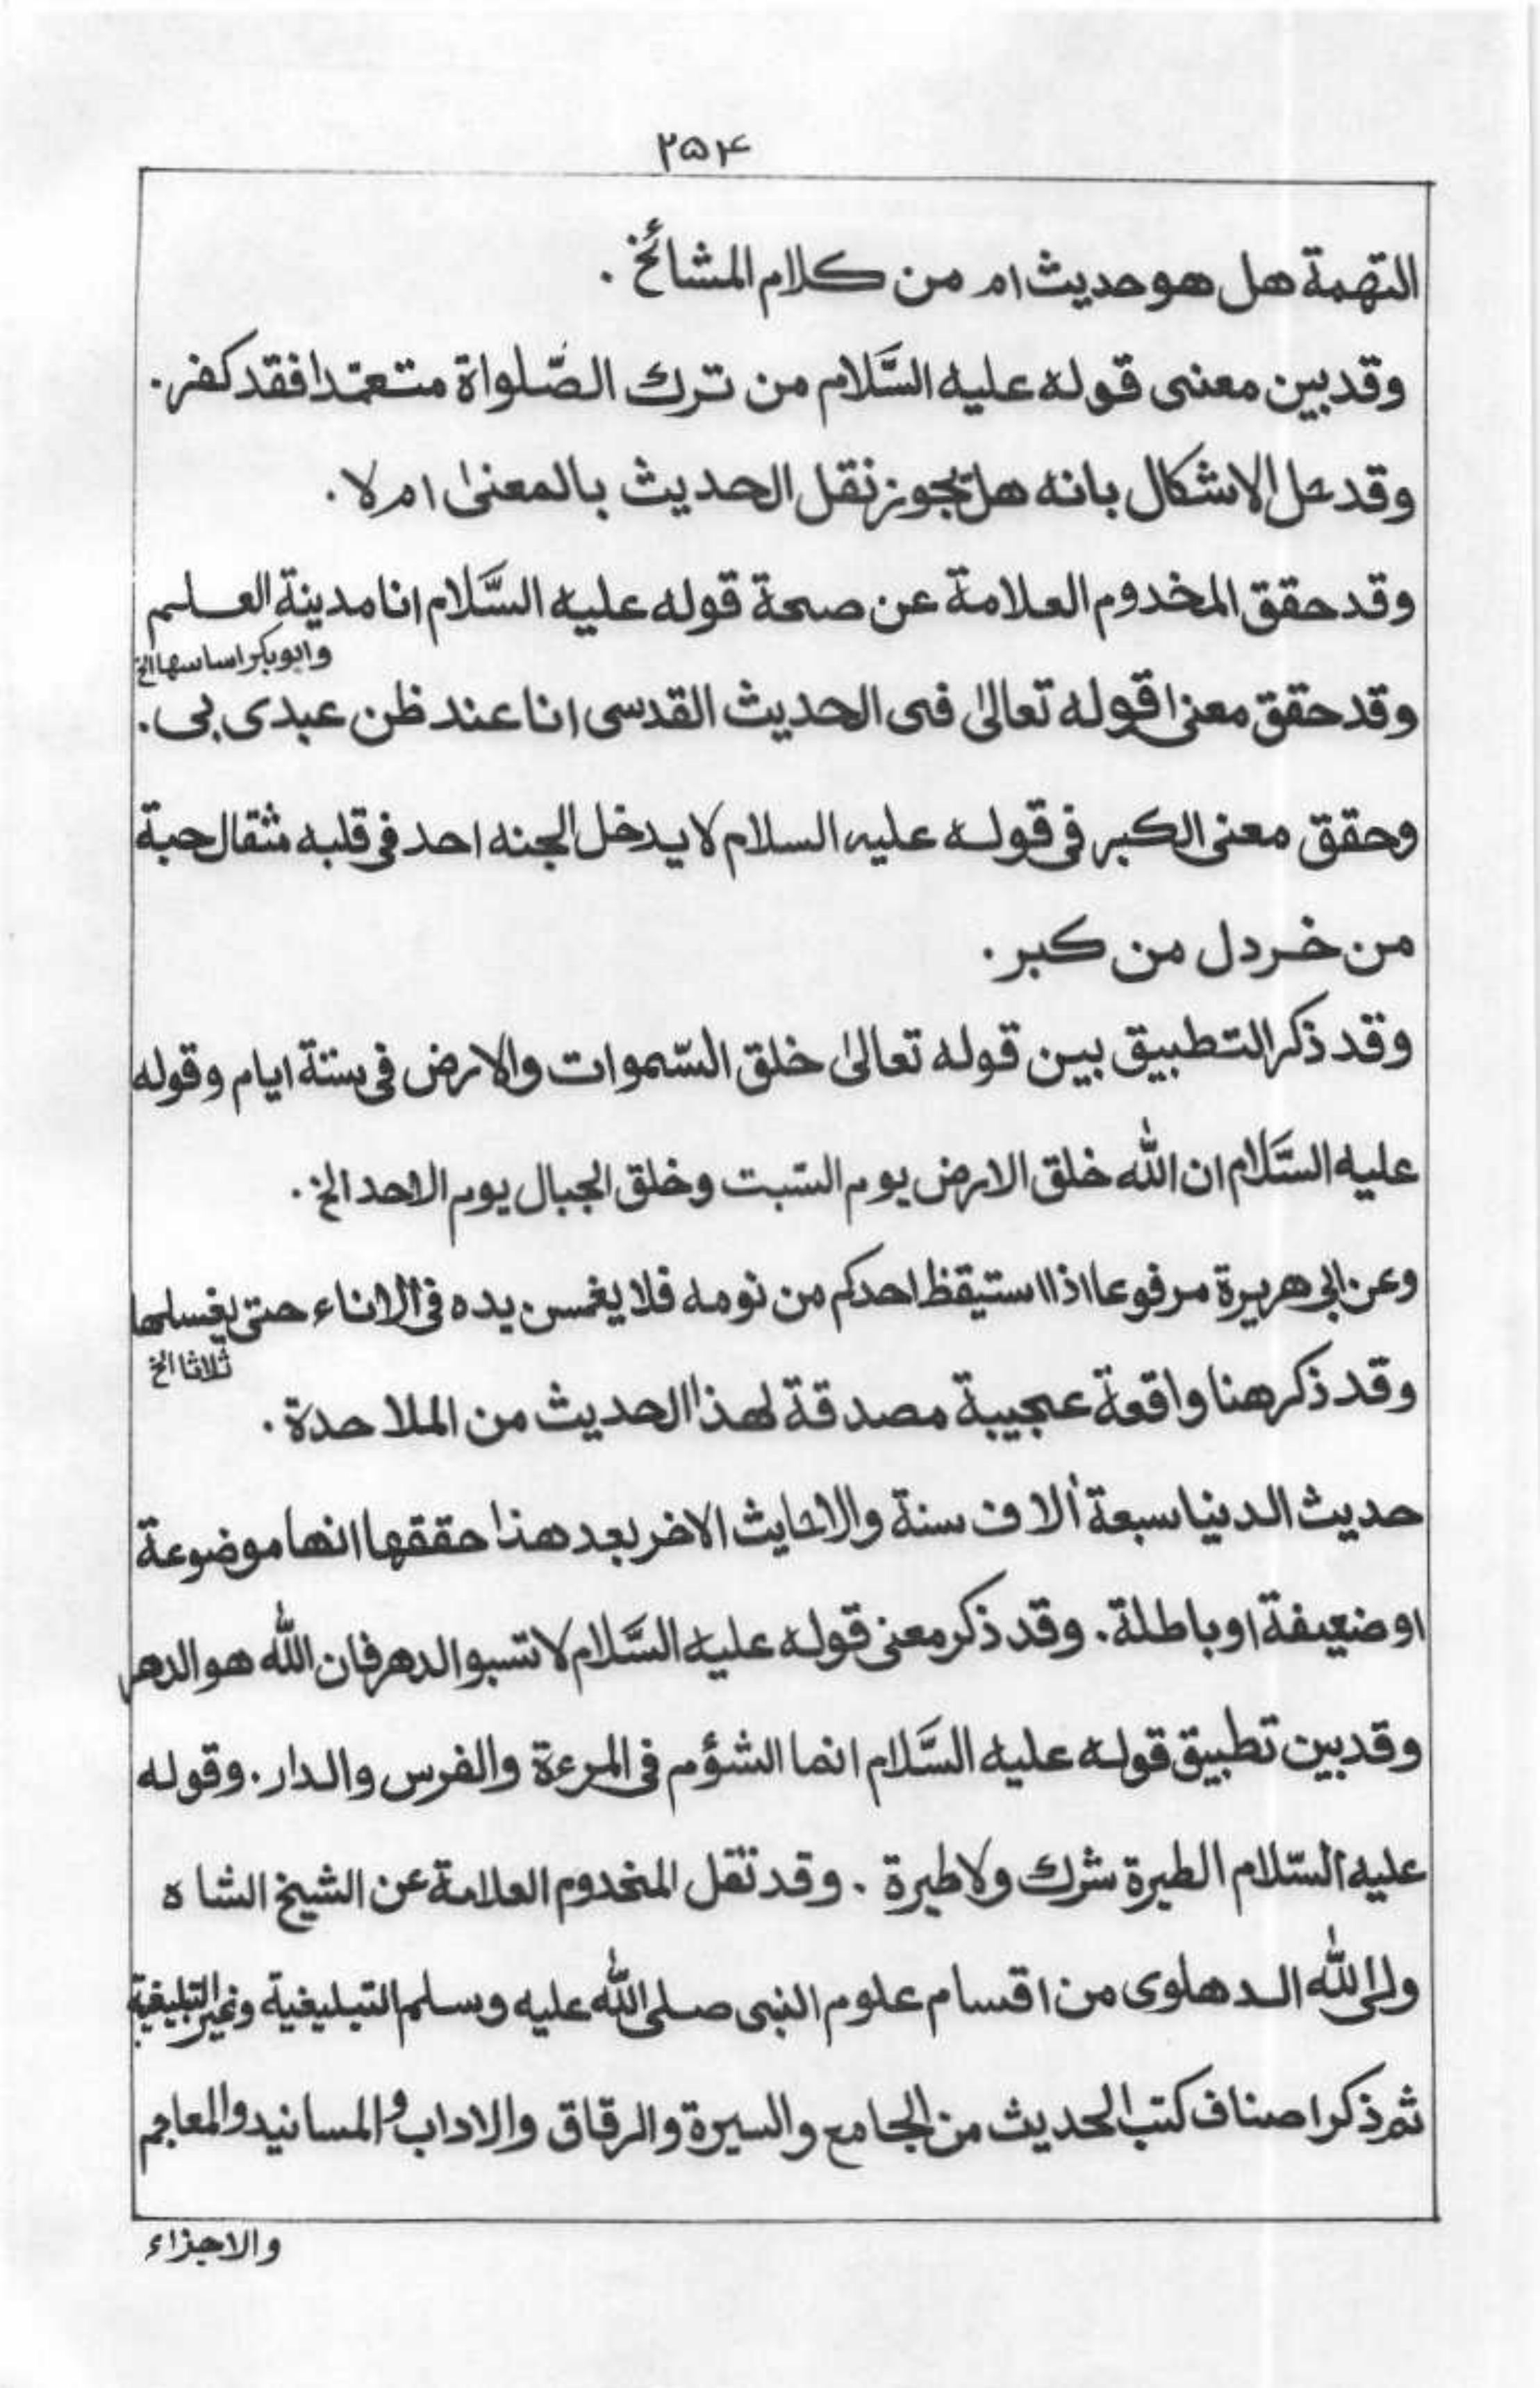 ۲۵۴
التهمة هل هو حديث ام من كلام المشائخ .
وقد بين معنى قوله عليه السَّلام من ترك الصّلواة متعمّدا فقد كفر .
وقد حل الاشكال بانه هل يجوز نقل الحديث بالمعنىٰ ام لا .
وقد حقق المخدوم العلامة عن صحة قوله عليه السَّلام انا مدينة العلم
وابوبكر اساسها الخ
وقد حقق معنىٰ قوله تعالىٰ فى الحديث القدسى انا عند ظن عبدى بى .
وحقق معنى الكبر فى قوله عليه السلام لا يدخل الجنه احد فى قلبه مثقال حبة
من خردل من كبر .
وقد ذكر التطبيق بين قوله تعالىٰ خلق السّموات والارض فى ستة ايام وقوله
عليه السَّلام ان الله خلق الارض يوم السّبت وخلق الجبال يوم الاحد الخ .
وعن ابى هريرة مرفوعا اذا استيقظ احدكم من نومه فلا يغمسن يده فى الاناء حتى يغسلها
ثلاثا الخ
وقد ذكر هنا واقعة عجيبة مصدقة لهذا الحديث من الملاحدة .
حديث الدنيا سبعة ألاف سنة والاحايث الاخر بعد هذا حققها انها موضوعة
او ضعيفة او باطلة . وقد ذكر معنى قوله عليه السَّلام لا تسبو الدهر فان الله هو الدهر
وقد بين تطبيق قوله عليه السَّلام انما الشؤم فى المرءة والفرس والدار . وقوله
عليه السّلام الطيرة شرك ولا طيرة . وقد نقل المخدوم العلامة عن الشيخ الشاه
ولى الله الدهلوى من اقسام علوم النبى صلى الله عليه وسلم التبليغية وغير التبليغية
ثم ذكر اصناف كتب الحديث من الجامع والسيرة والرقاق والاداب و المسانيد والمعاجم
والاجزاء